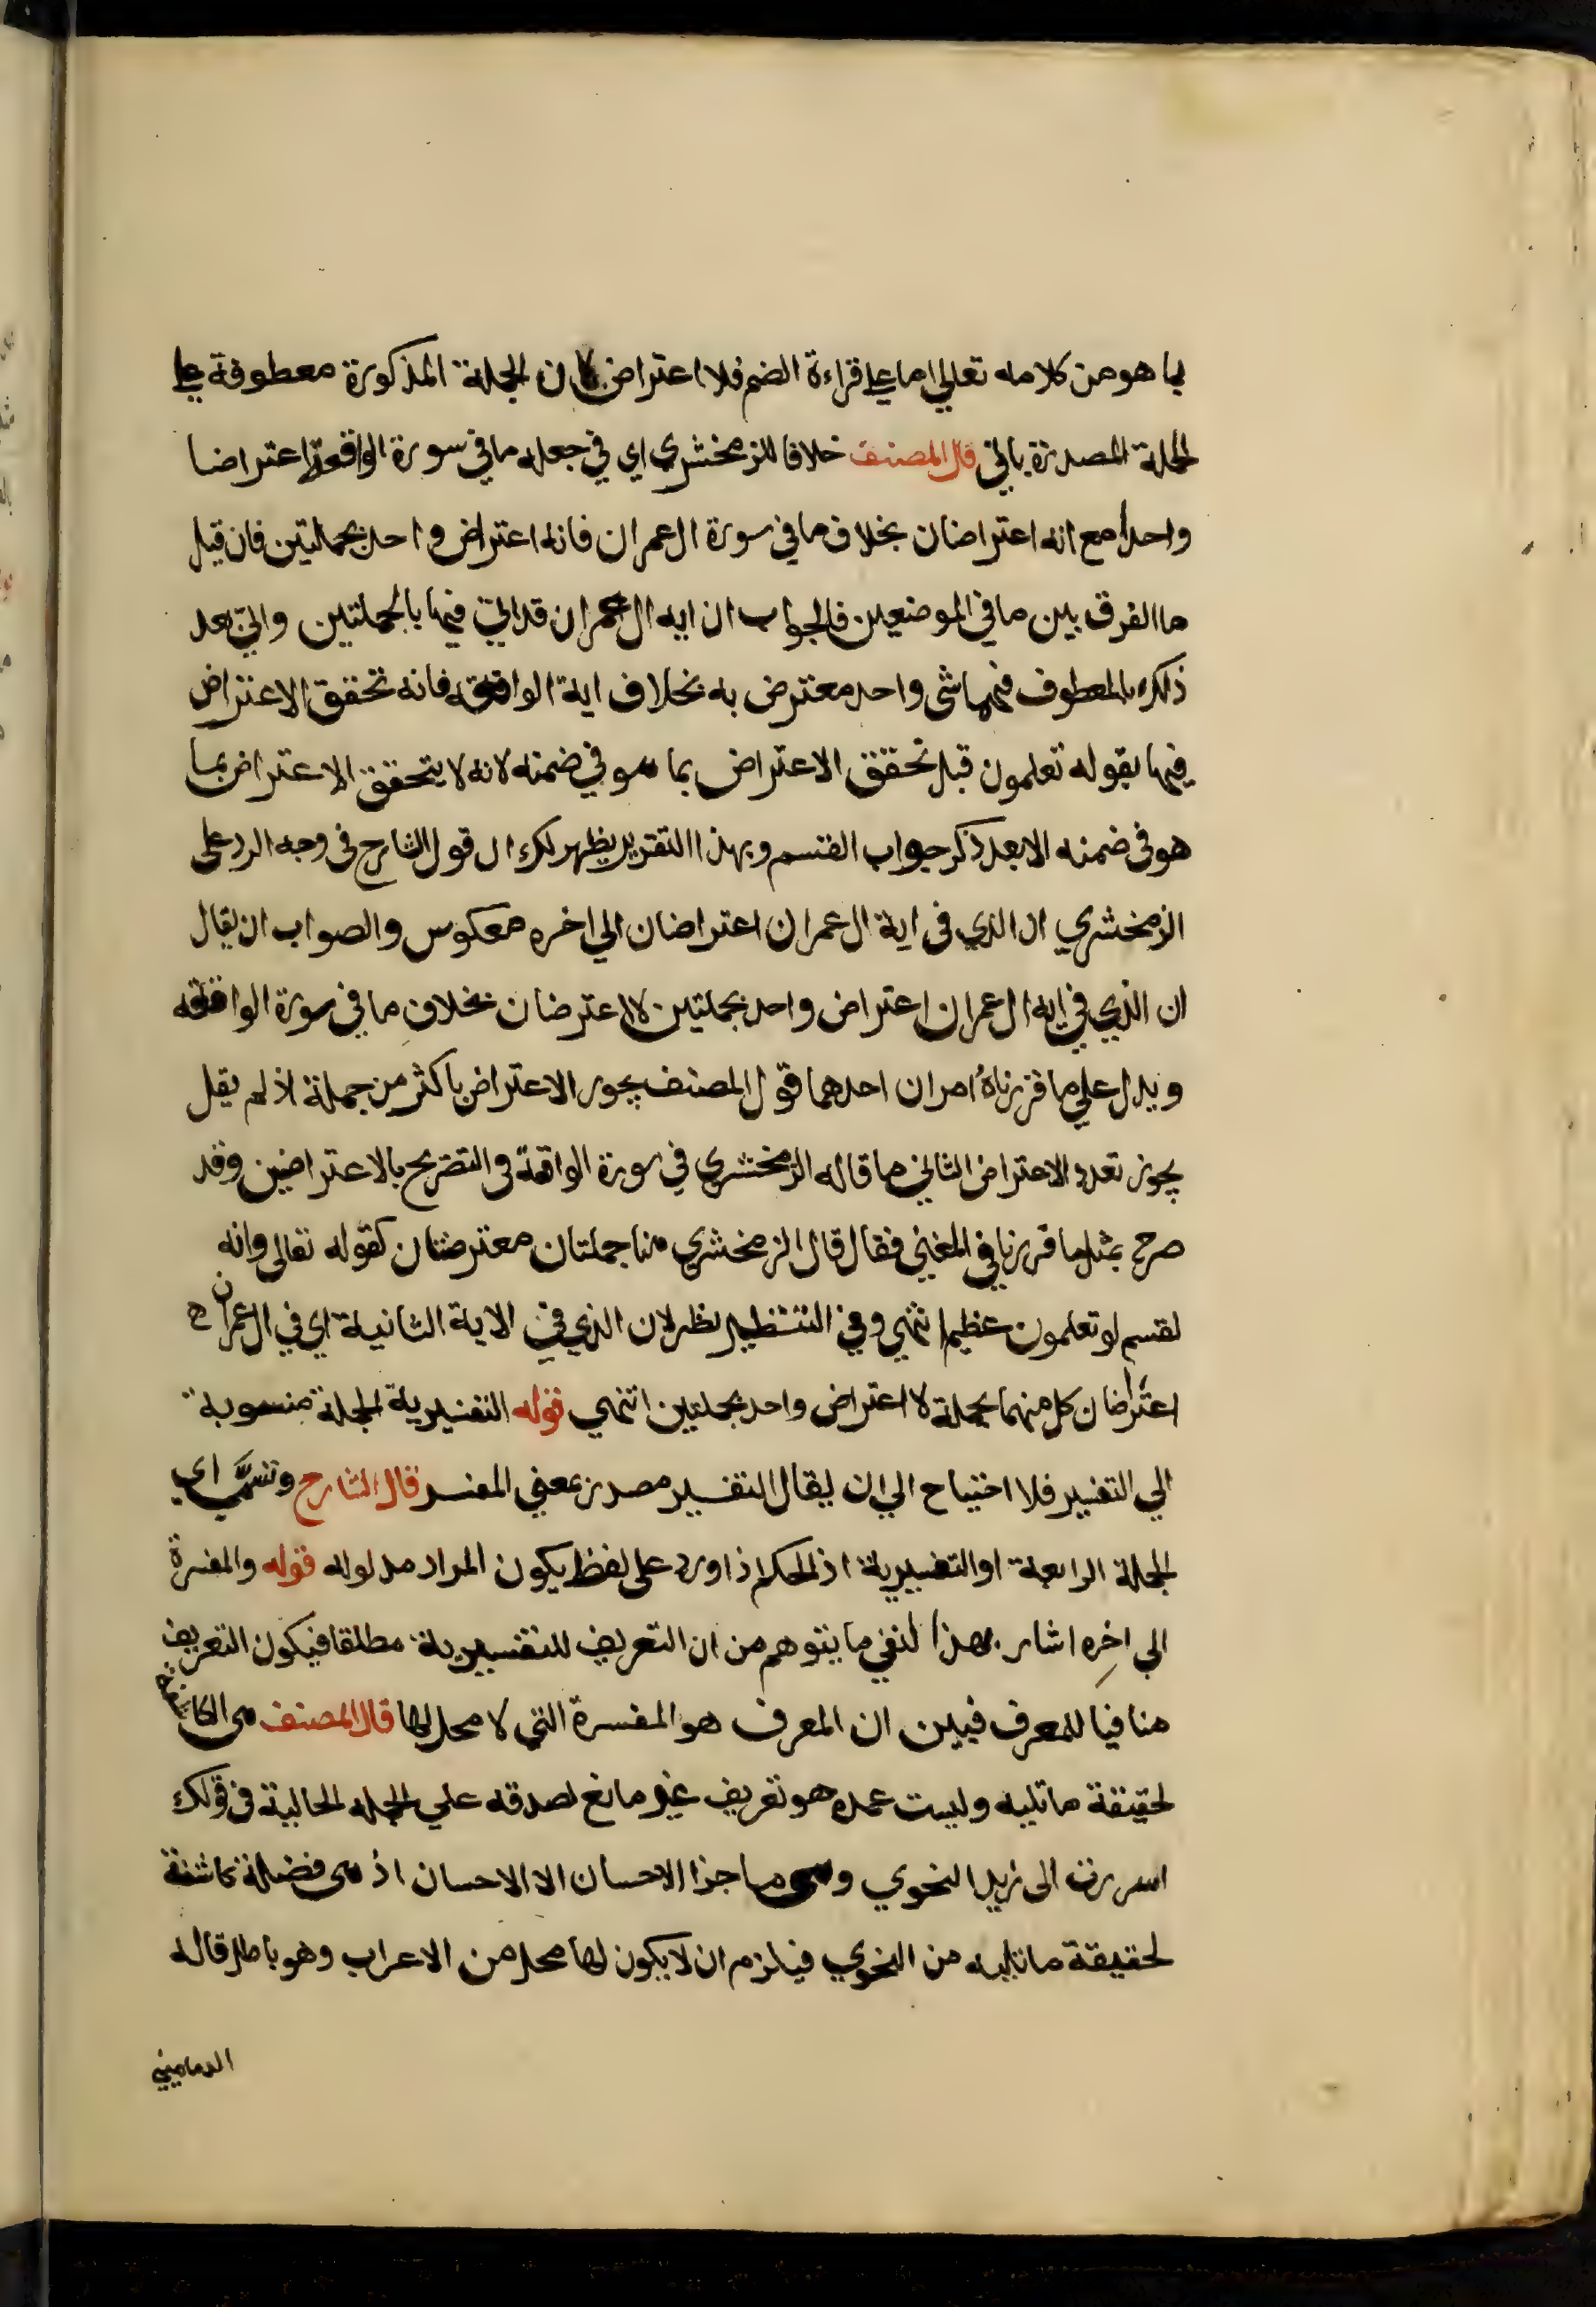 بما هو من كلامه تعالي اما علي قراءة الضم فلا اعتراض لان الجملة المذكورة معطوفة علي
الجملة المصدرة باني قال المصنف خلافا للزمخشري اي في جعله ما في سورة الواقعة اعتراضا
واحدا مع انه اعتراضان بخلاف ما في سورة ال عمران فانه اعتراض واحد بجملتين فان قيل
ما الفرق بين ما في الموضعين فالجواب ان ايه ال عمران قد اتي فيها بالجملتين والتي بعد
ذكره بالمعطوف فيها شي واحد معترض به بخلاف اية الواقعه فانه تحقق الاعتراض
فيها بقوله تعلمون قبل تحقق الاعتراض بما هو في ضمنه لانه لا يتحقق الاعتراض بما
هو في ضمنه الا بعد ذكر جواب القسم وبهذا التقرير يظهر لك ان قول الشارح في وجه الرد على
الزمخشري ان الذي في اية ال عمران اعتراضان الي اخره معكوس والصواب ان يقال
ان الذي في ايه ال عمران اعتراض واحد بجملتين لا اعترضان بخلاف ما في سورة الواقعه
ويدل علي ما قررناه امران احدهما قول المصنف يجوز الاعتراض باكثر من جملة اذ لم يقل
يجوز تعدد الاعتراض الثاني ما قاله الزمخشري في سورة الواقعة في التصريح بالاعتراضين وقد
صرح بمثل ما قررنا في المغني فقال قال الزمخشري هنا جملتان معترضتان كقوله تعالى وانه
لقسم لو تعلمون عظيم انتهي وفي التنظير نظر لان الذي في الاية الثانية اي في ال عمران
اعتراضان كل منهما بجملة لا اعتراض واحد بجملتين انتهي قوله التفسيرية الجملة منسوبة
الي التفسير فلا احتياح الي ان يقال التفسير مصدر بمعني المفسر قال الشارح وتسمى اي
الجملة الرابعة او التفسيرية اذ الحكم اذا ورد على لفظ يكون المراد مدلوله قوله والمفسرة
الي اخره اشار بهذا لنفي ما يتوهم من ان التعريف للتفسيرية مطلقا فيكون التعريف
منافيا للمعرف فبين ان المعرف هو المفسرة التي لا محل لها قال المصنف هي الكاشفة
لحقيقة ما تليه وليست عمده هو تعريف غير مانع لصدقه علي الجمله الحالية في قولك
اسررت الى زيد النحوي وهي ما جزا الاحسان الا الاحسان اذ هي فضلة كاشفة
لحقيقة ما تليه من النحوي فيلزم ان لا يكون لها محل من الاعراب وهو باطل قاله
الدماميني